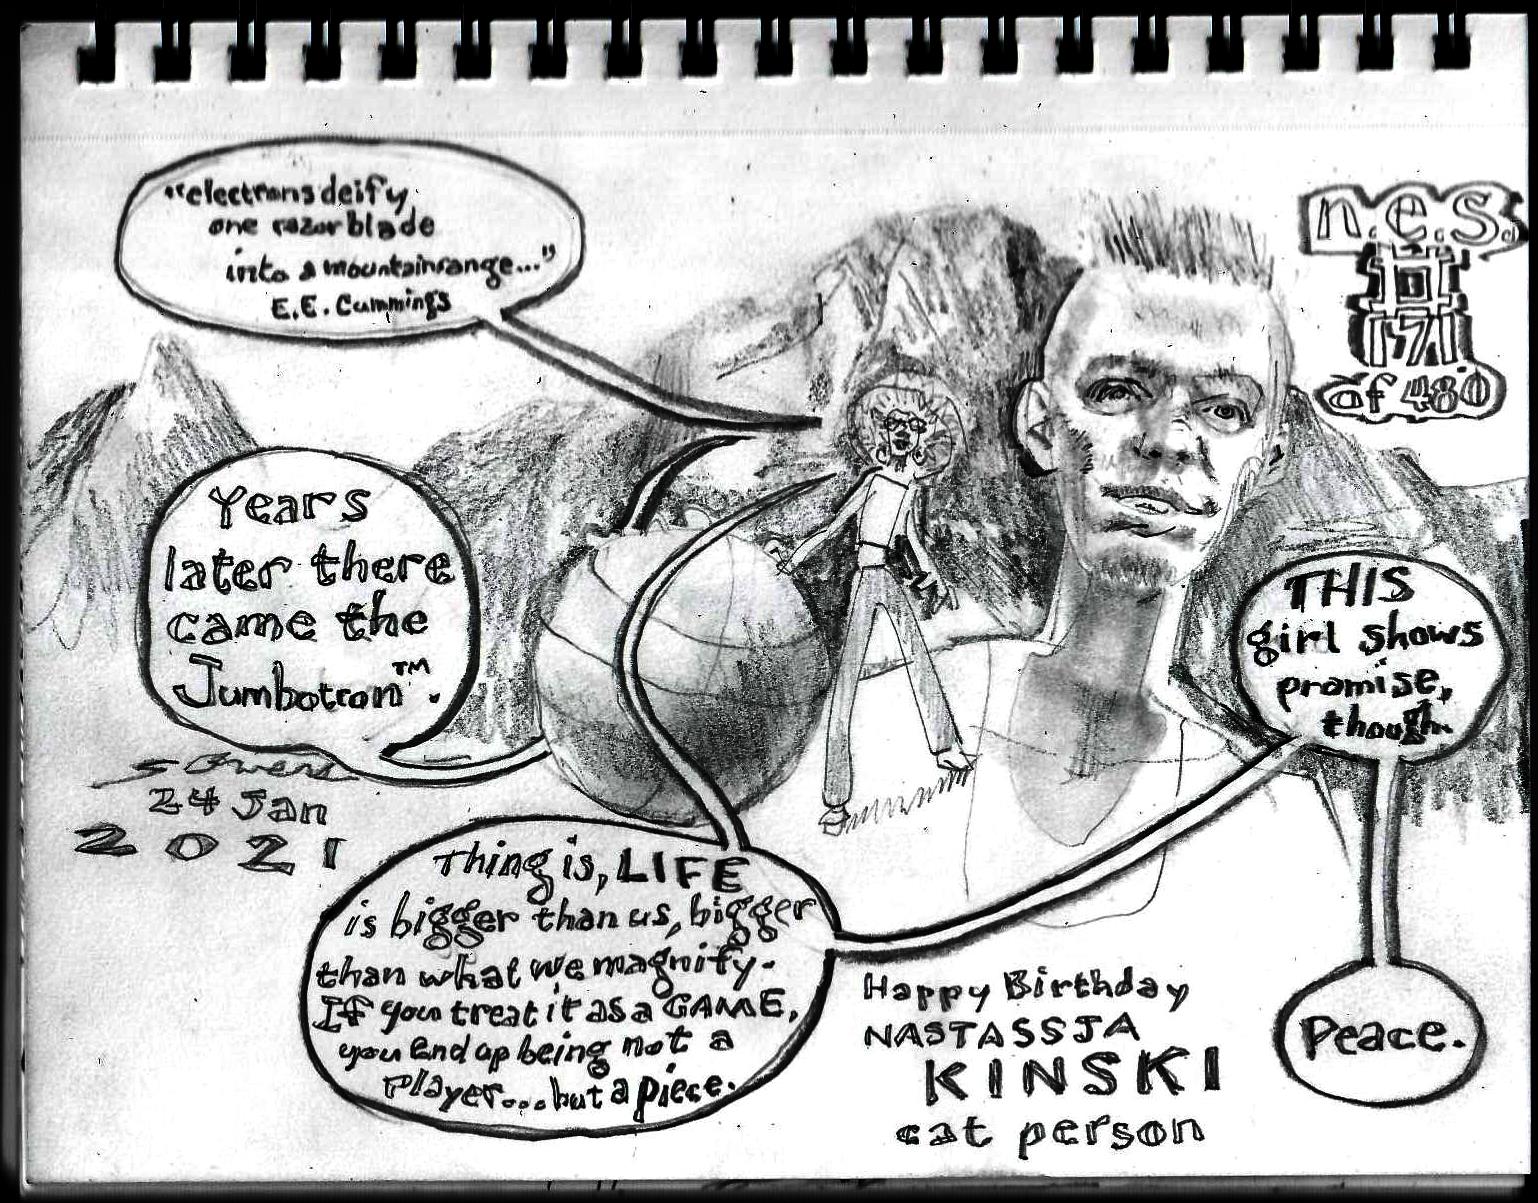 "electrons deify
one razorblade
into a mountainrange..."
E.E. Cummings
n.e.s.
171
of 480
Years
later there
came the
Jumbotron™.
THIS
girl shows
promise,
though.
S Owens
24 Jan
2021
Thing is, LIFE
is bigger than us, bigger
than what we magnify.
If you treat it as a GAME,
you end up being not a
player... but a piece.
Happy Birthday
NASTASSJA
KINSKI
cat person
Peace.